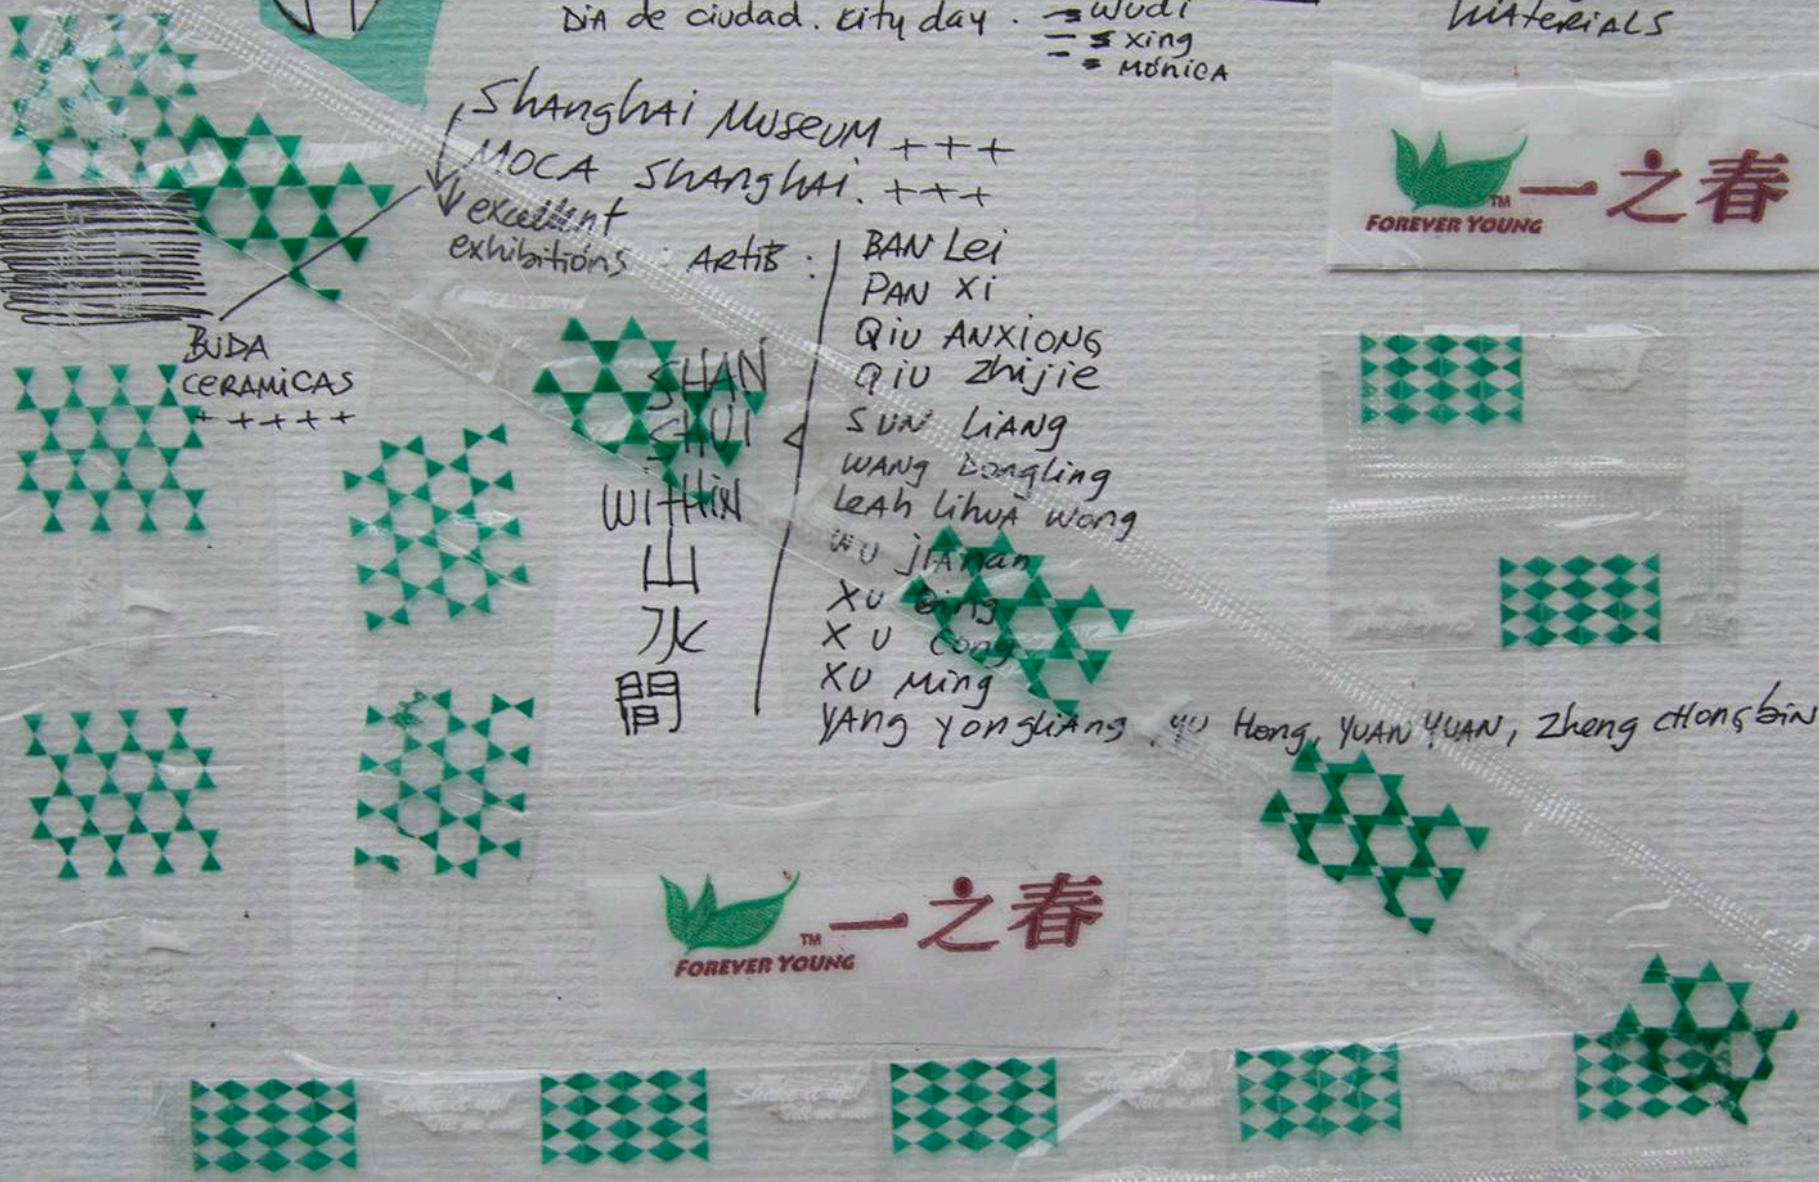 DiA de ciudad. City day. Wudi
xing
MónicA
MATERIALS
ShAnghAi MUSEUM +++
MOCA ShAnghAi. +++
excellent
exhibitions : Artists :
BAN Lei
PAN Xi
QiU ANXIONG
QiU Zhijie
SUN LiANG
WANG Dongling
LeAh LihuA Wong
WU jiAnan
XU Bing
XU Cong
XU Ming
YAng YongliAng, YU Hong, YUAN YUAN, Zheng CHongbin
SHAN
SHUI
WiTHiN
山
水
間
BUDA
CERAMiCAS
+++++
TM 一之春
FOREVER YOUNG
TM 一之春
FOREVER YOUNG